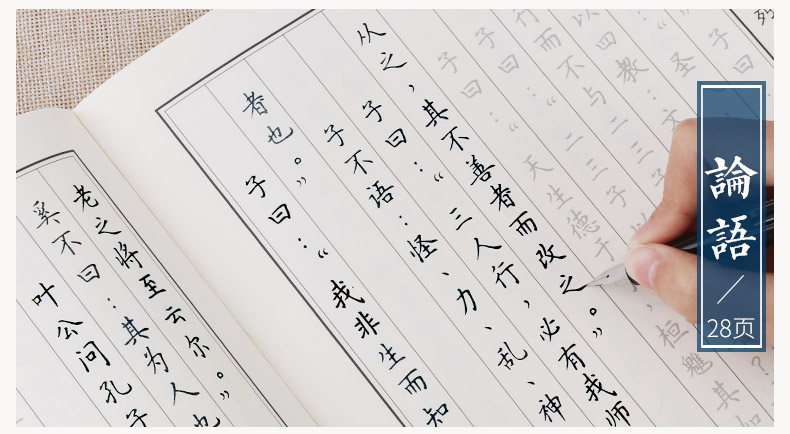 叶公问孔子
奚不曰：其为人也
老之将至云尔。”
子曰：“我非生而知
者也。”
子不语：怪、力、乱、神
子曰：“三人行，必有我师
从之，其不善者而改之。”
子曰：“天生德于，桓魋其如
？
子曰：“二三子以
行而不与二三子
以四教：文
圣
子曰
列
論語
28页